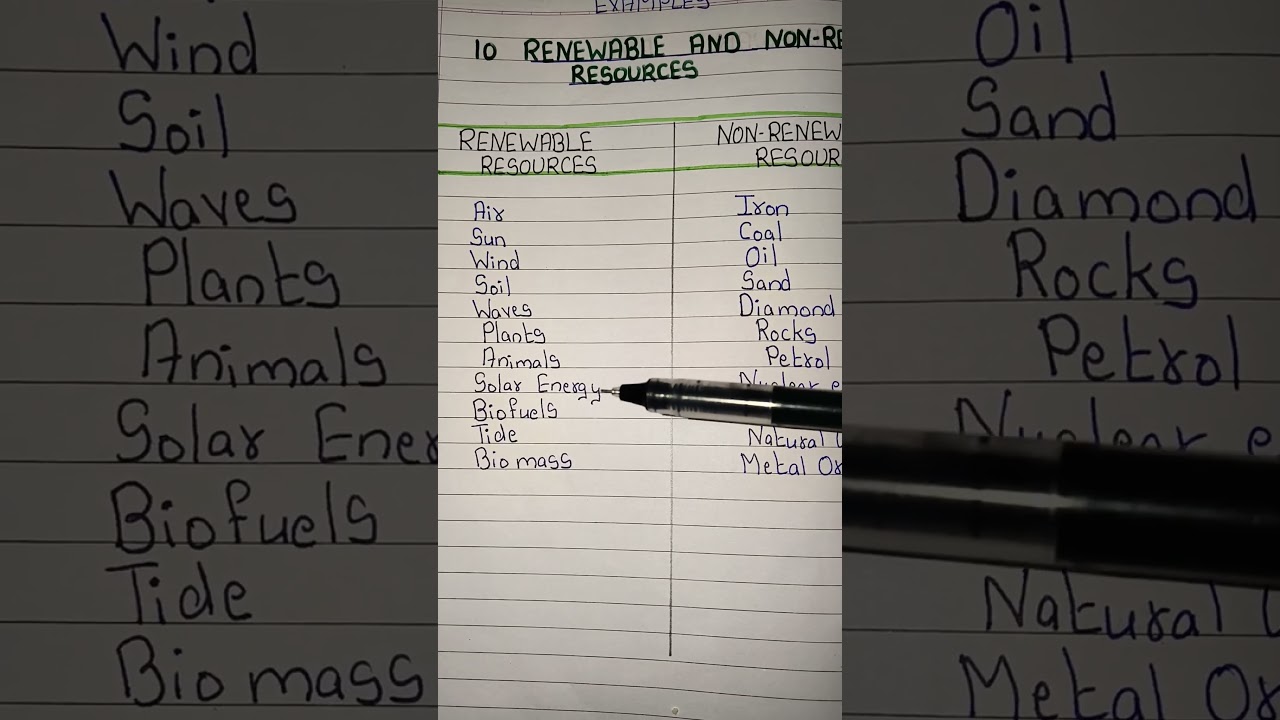 EXAMPLES
10 RENEWABLE AND NON-RE
RESOURCES
RENEWABLE RESOURCES
NON-RENEW
RESOUR
Air Iron
Sun Coal
Wind Oil
Soil Sand
Waves Diamond
Plants Rocks
Animals Petrol
Solar Energy Nuclear e
Biofuels
Tide Natural
Biomass Metal Ox
Wind
Soil
Waves
Plants
Animals
Solar Ener
Biofuels
Tide
Biomass
Oil
Sand
Diamond
Rocks
Petrol
Nuclear e
Natural
Metal Ox